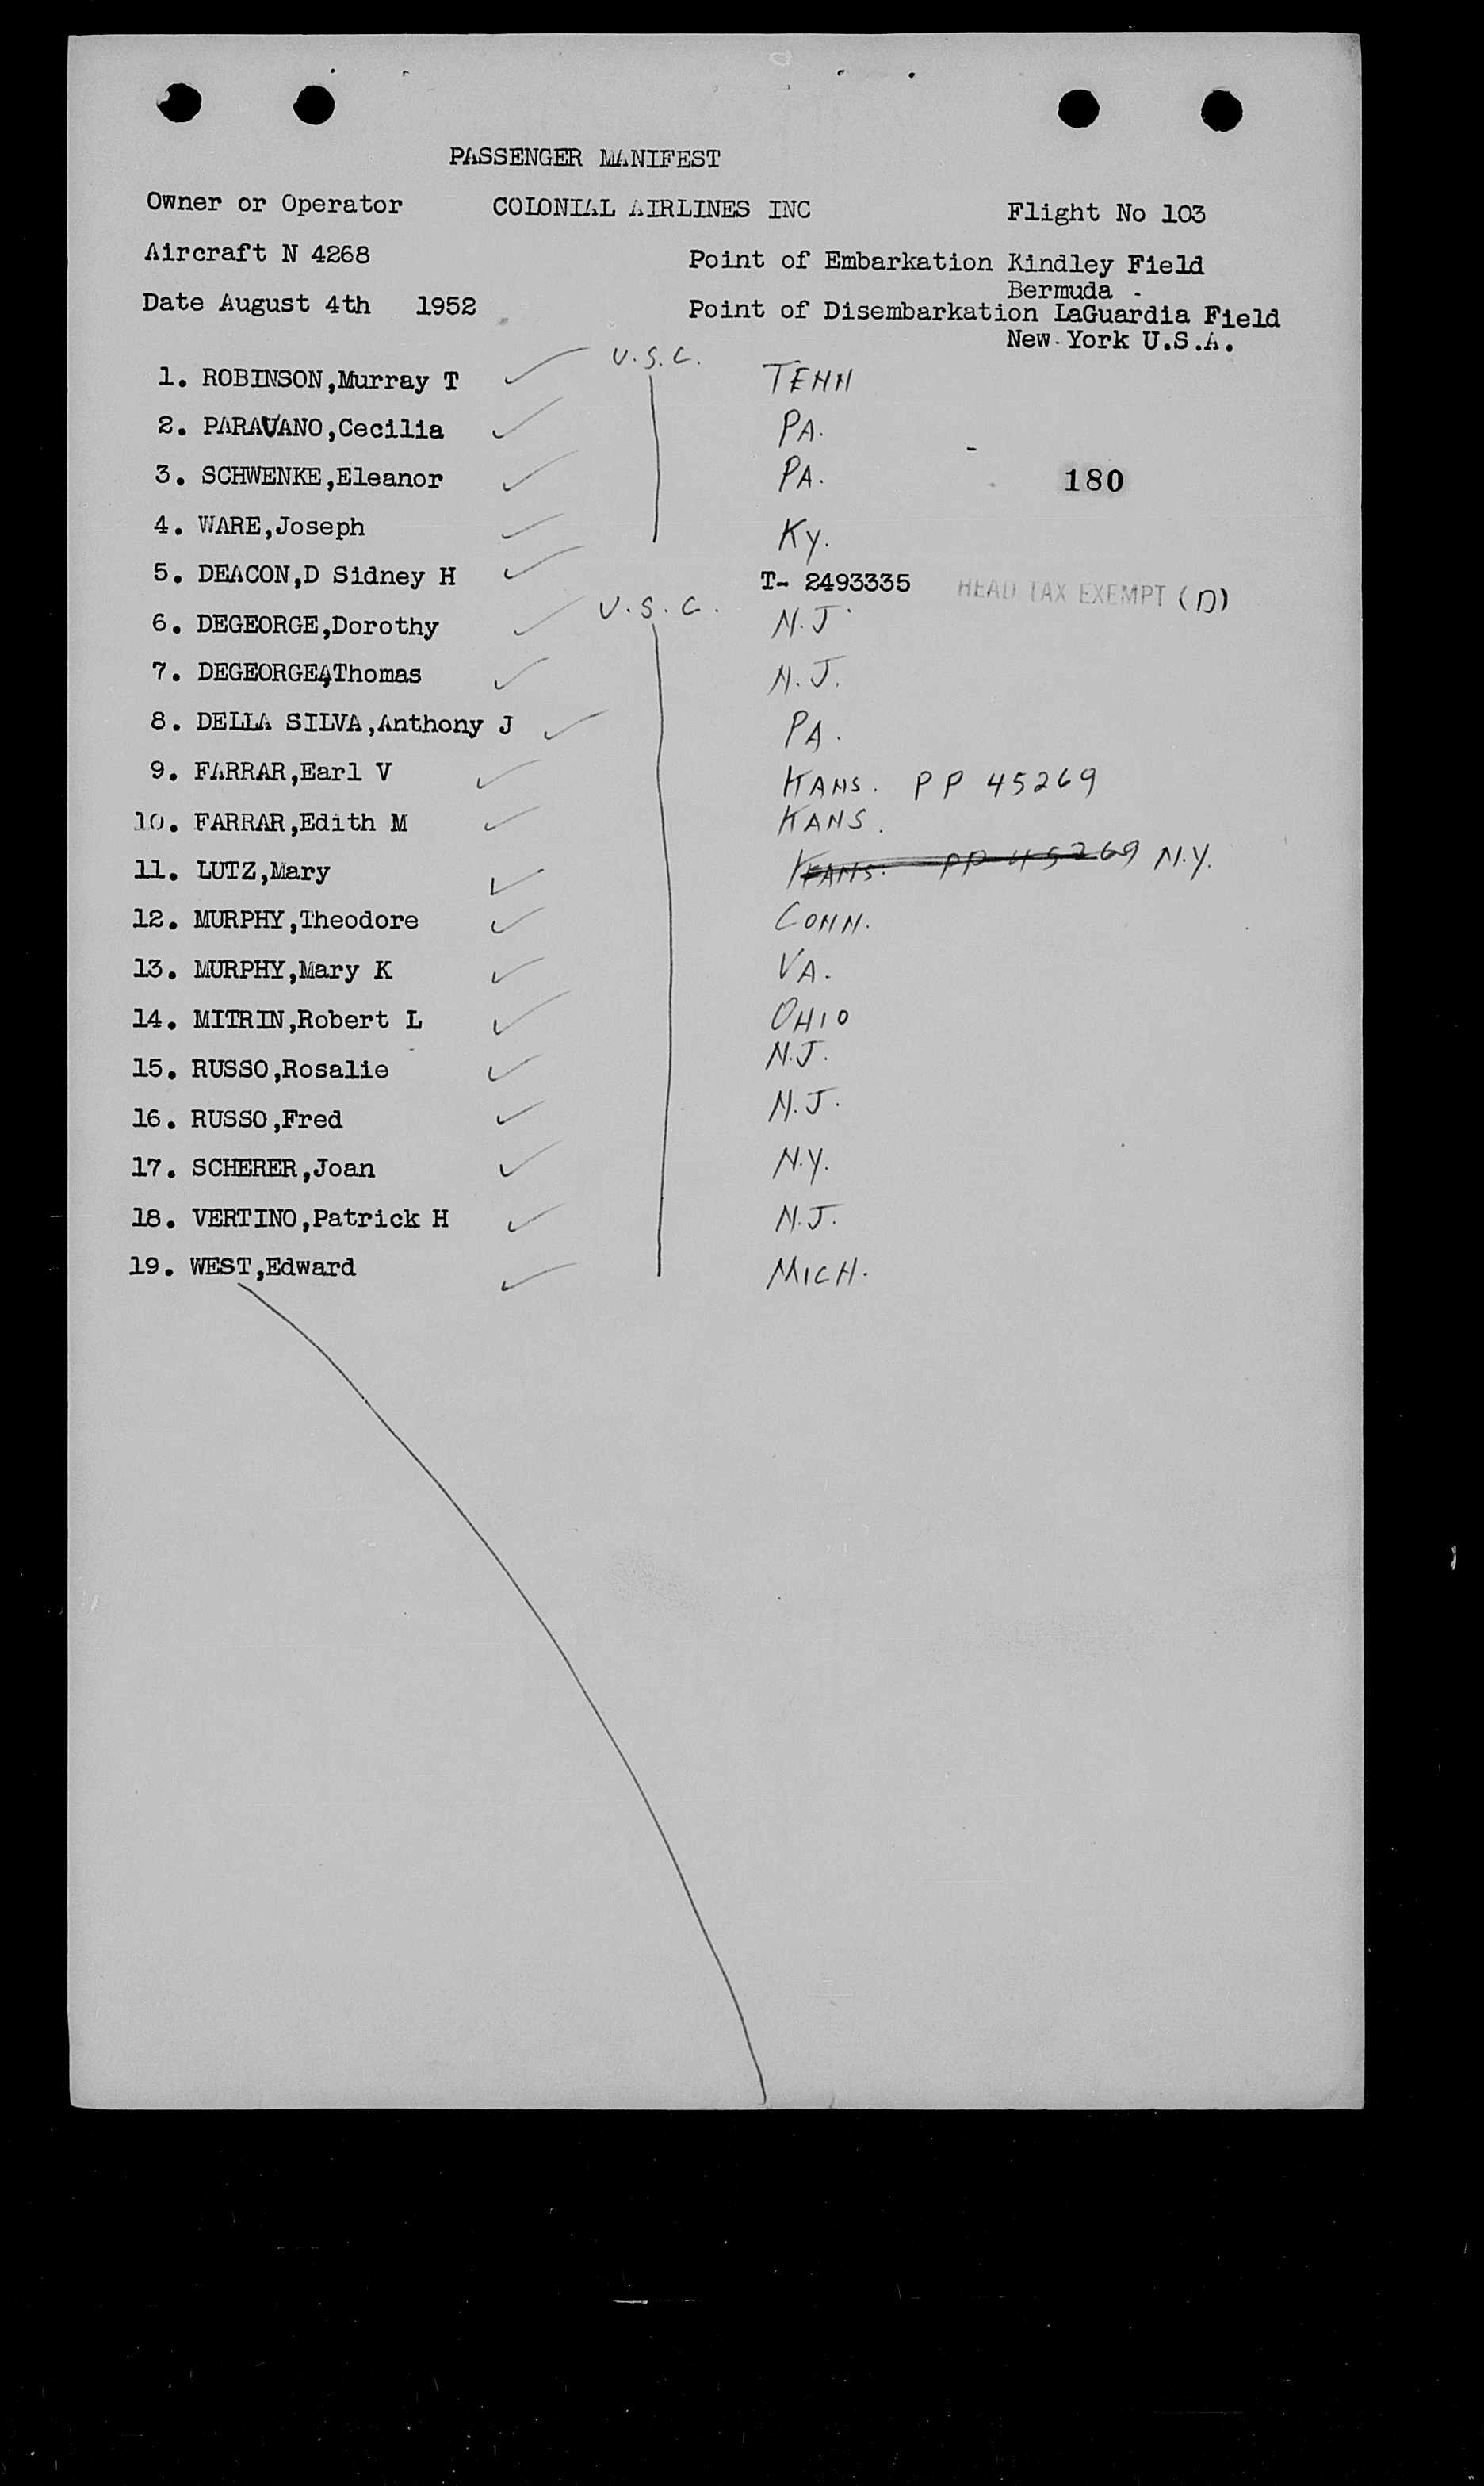 PASSENGER MANIFEST
Owner or Operator COLONIAL AIRLINES INC Flight No 103
Aircraft N 4268 Point of Embarkation Kindley Field
Bermuda -
Date August 4th 1952 Point of Disembarkation LaGuardia Field
New York U.S.A.
U.S.C.
1. ROBINSON,Murray T TENN
2. PARAVANO,Cecilia PA.
3. SCHWENKE,Eleanor PA. 180
4. WARE,Joseph Ky.
5. DEACON,D Sidney H T- 2493335 HEAD TAX EXEMPT (D)
U.S.C.
6. DEGEORGE,Dorothy N.J.
7. DEGEORGE,Thomas N.J.
8. DELLA SILVA,Anthony J PA.
9. FARRAR,Earl V KANS. PP 45269
10. FARRAR,Edith M KANS.
11. LUTZ,Mary KANS. PP 45269 N.Y.
12. MURPHY,Theodore CONN.
13. MURPHY,Mary K VA.
14. MITRIN,Robert L OHIO
15. RUSSO,Rosalie N.J.
16. RUSSO,Fred N.J.
17. SCHERER,Joan N.Y.
18. VERTINO,Patrick H N.J.
19. WEST,Edward MICH.